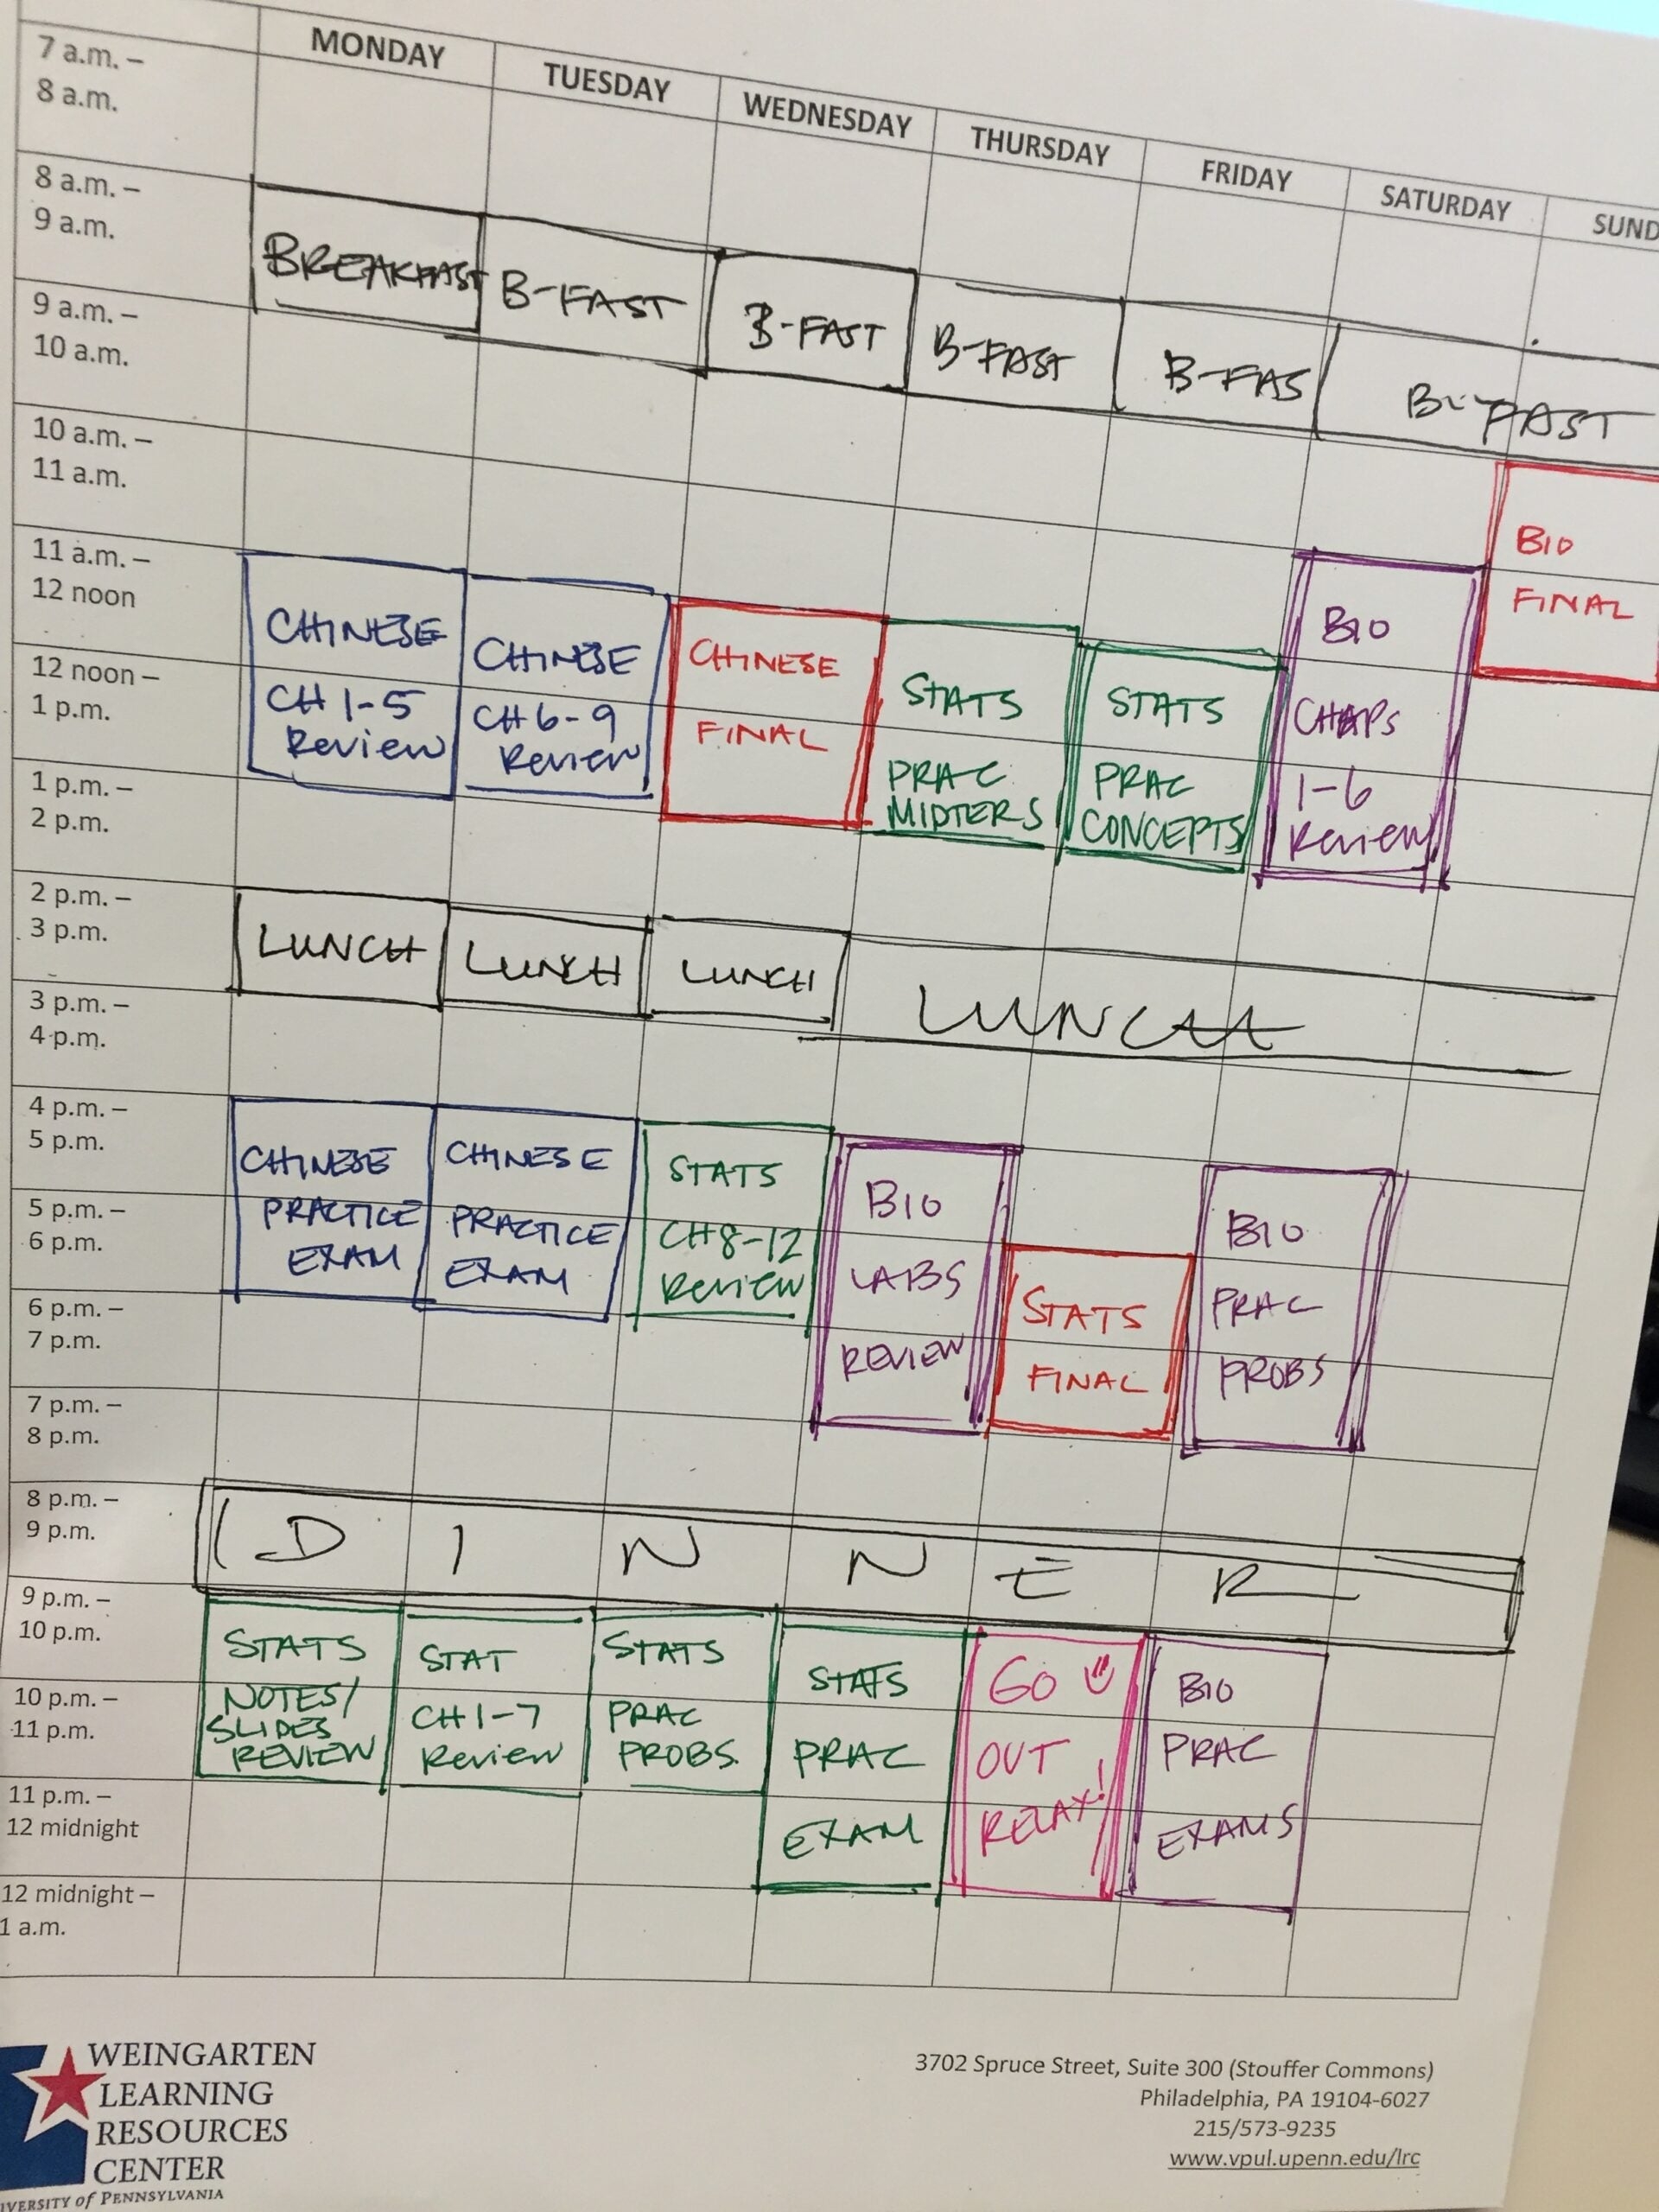 MONDAY TUESDAY WEDNESDAY THURSDAY FRIDAY SATURDAY SUND
7 a.m. –
8 a.m.
8 a.m. –
9 a.m.
BREAKFAST B-FAST B-FAST B-FAST B-FAS B-FAST
9 a.m. –
10 a.m.
10 a.m. –
11 a.m.
BIO
FINAL
11 a.m. –
12 noon
12 noon –
1 p.m.
CHINESE
CH 1-5
Review
CHINESE
CH 6-9
Review
CHINESE
FINAL
STATS
PRAC
MIDTERS
STATS
PRAC
CONCEPTS
BIO
CHAPS
1-6
Review
1 p.m. –
2 p.m.
2 p.m. –
3 p.m.
LUNCH LUNCH LUNCH LUNCH
3 p.m. –
4 p.m.
4 p.m. –
5 p.m.
5 p.m. –
6 p.m.
CHINESE
PRACTICE
EXAM
CHINESE
PRACTICE
EXAM
STATS
CH8-12
Review
BIO
LABS
REVIEW
STATS
FINAL
BIO
PRAC
PROBS
6 p.m. –
7 p.m.
7 p.m. –
8 p.m.
8 p.m. –
9 p.m.
D I N N E R
9 p.m. –
10 p.m.
10 p.m. –
11 p.m.
STATS
NOTES/
SLIDES
REVIEW
STAT
CH1-7
Review
STATS
PRAC
PROBS.
STATS
PRAC
EXAM
GO
OUT
RELAX!
BIO
PRAC
EXAMS
11 p.m. –
12 midnight
12 midnight –
1 a.m.
WEINGARTEN
LEARNING
RESOURCES
CENTER
IVERSITY of PENNSYLVANIA
3702 Spruce Street, Suite 300 (Stouffer Commons)
Philadelphia, PA 19104-6027
215/573-9235
www.vpul.upenn.edu/lrc